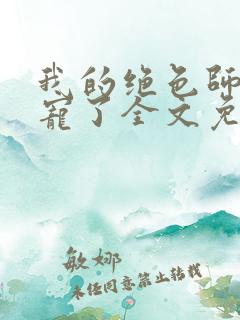 我的绝色师
宠了全文免
敏娜
未经同意禁止转载